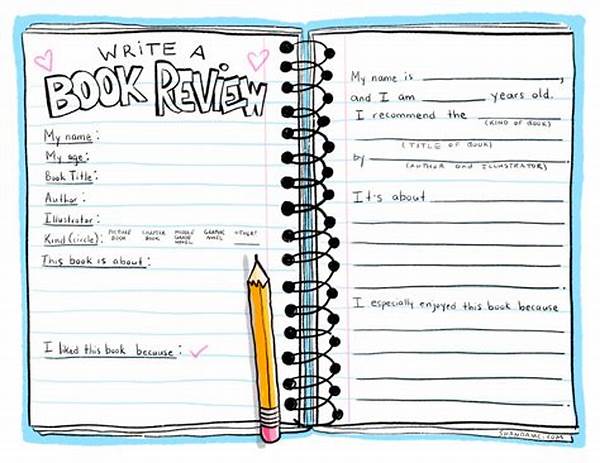 WRITE A
BOOK REVIEW
My name:
My age:
Book Title:
Author:
Illustrator:
Kind (circle): PICTURE BOOK CHAPTER BOOK MIDDLE GRADE NOVEL GRAPHIC NOVEL OTHER?
This book is about:
I liked this book because:
My name is ,
and I am years old.
I recommend the
(KIND OF BOOK)
(TITLE OF BOOK)
by .
(AUTHOR AND ILLUSTRATOR)
It's about
.
I especially enjoyed this book because
.
SHANDAMC.COM